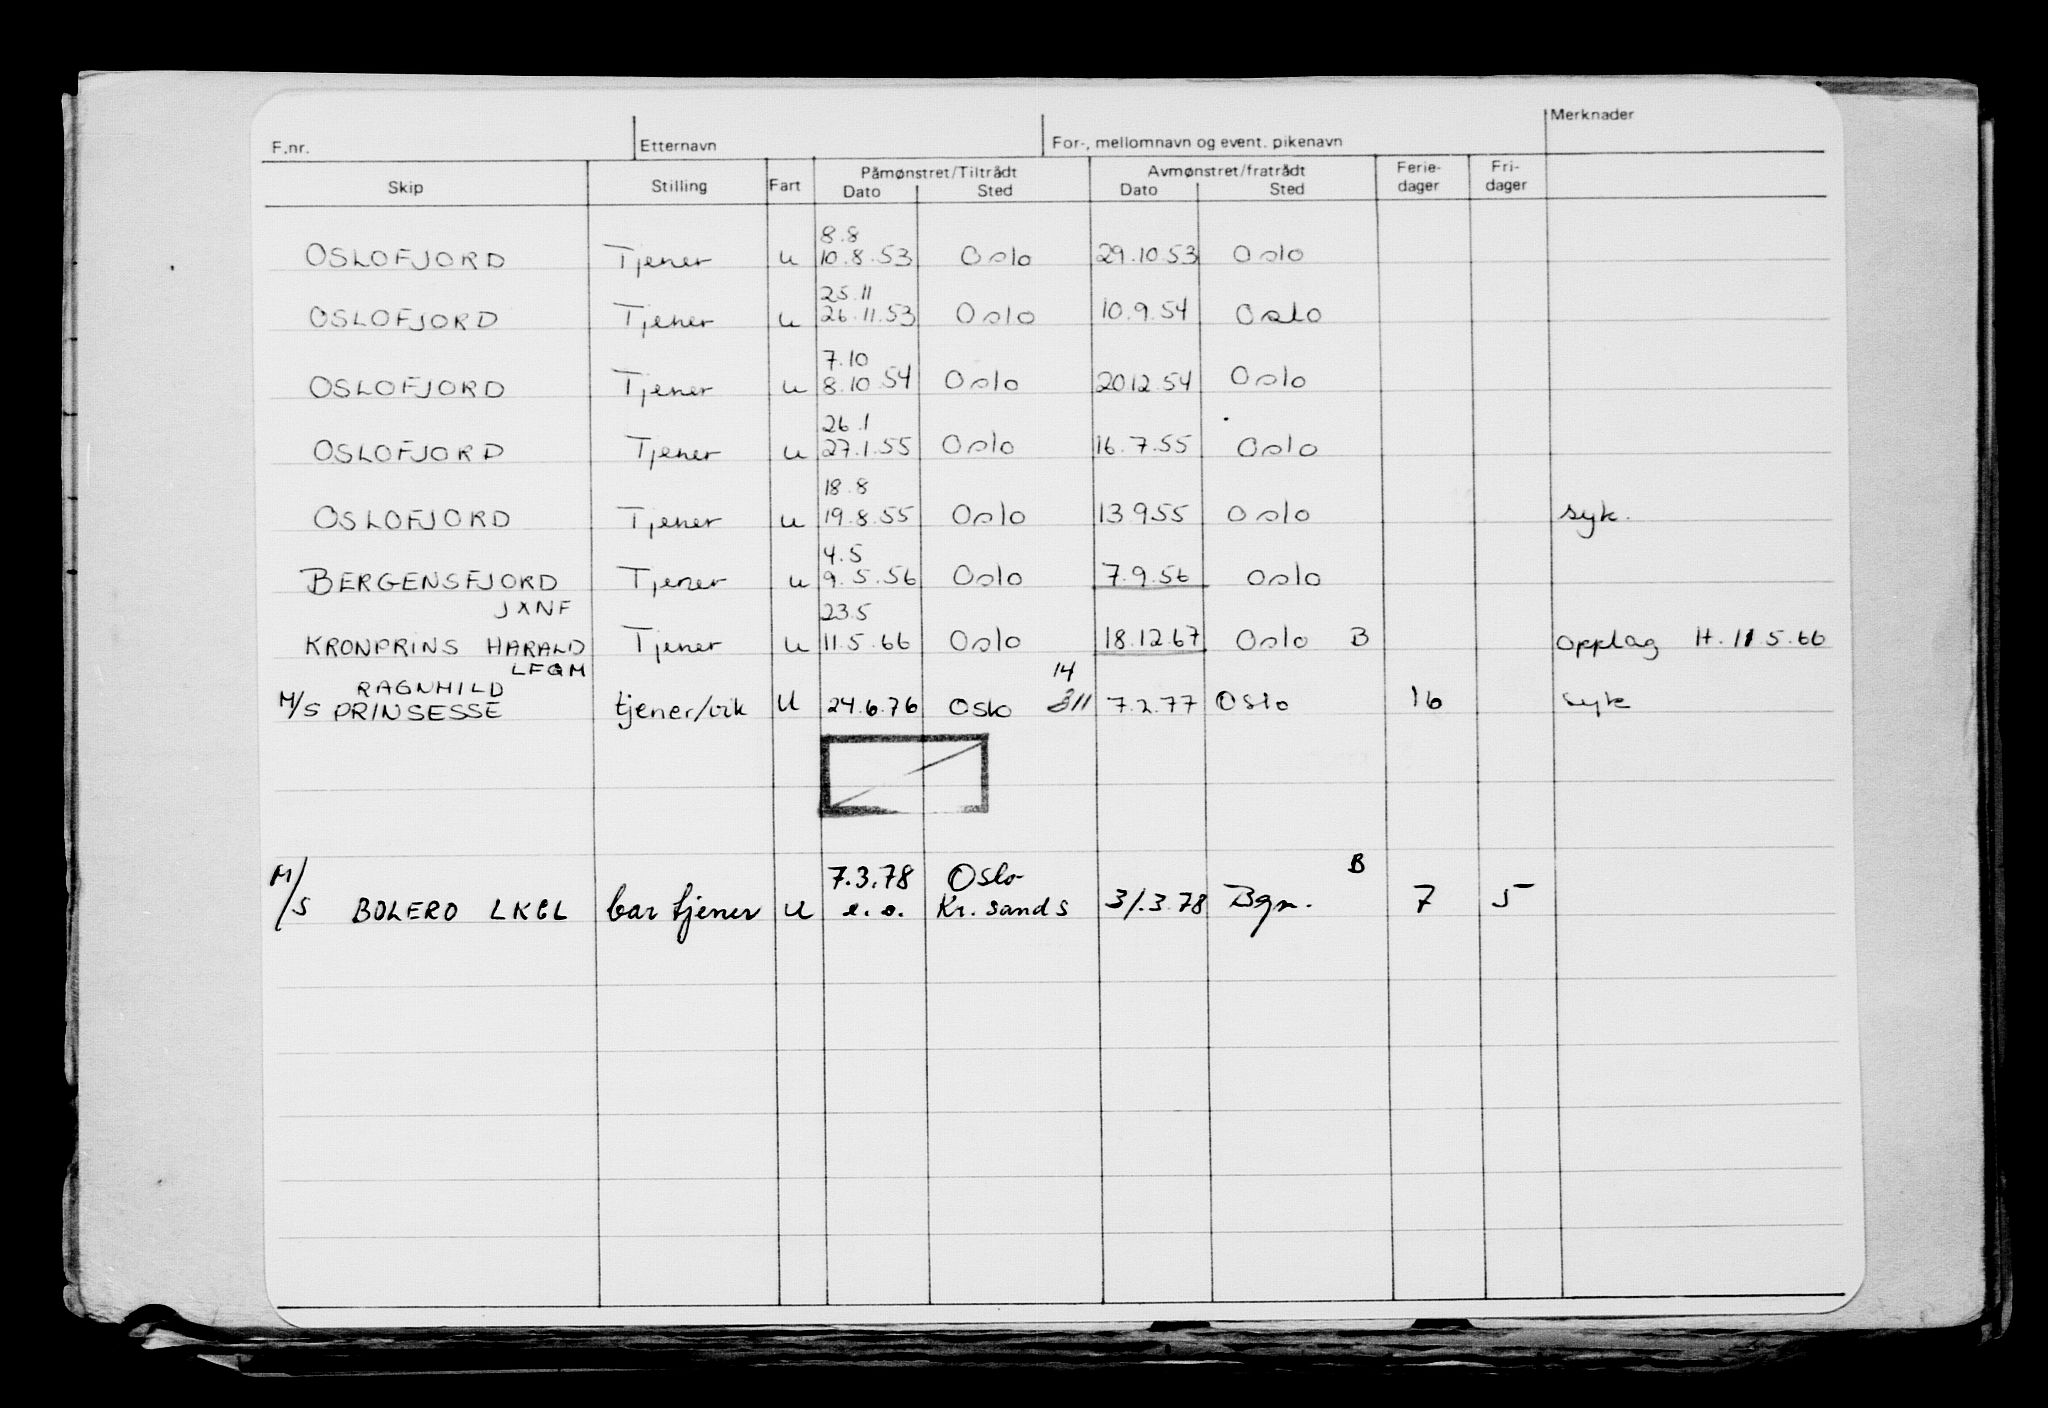 F.nr. Etternavn For-, mellomnavn og event. pikenavn Merknader
Skip Stilling Fart Påmønstret/Tiltrådt Avmønstret/fratrådt Ferie- Fri-
Dato Sted Dato Sted dager dager
8.8
OSLOFJORD Tjener u 10.8.53 Oslo 29.10.53 Oslo
25.11
OSLOFJORD Tjener u 26.11.53 Oslo 10.9.54 Oslo
7.10
OSLOFJORD Tjener u 8.10.54 Oslo 20.12.54 Oslo
26.1
OSLOFJORD Tjener u 27.1.55 Oslo 16.7.55 Oslo
18.8
OSLOFJORD Tjener u 19.8.55 Oslo 13.9.55 Oslo syk.
4.5
BERGENSFJORD Tjener u 9.5.56 Oslo 7.9.56 Oslo
JXNF 23.5
KRONPRINS HARALD Tjener u 11.5.66 Oslo 18.12.67 Oslo B Opplag H. 11.5.66
LFQM 14
RAGNHILD
M/S PRINSESSE tjener/vik U 24.6.76 Oslo 311 7.2.77 Oslo 16 syk
7.3.78 Oslo B
M/S BOLERO LKBL bar tjener U e.o. Kr. sands 31.3.78 Bgn. 7 5